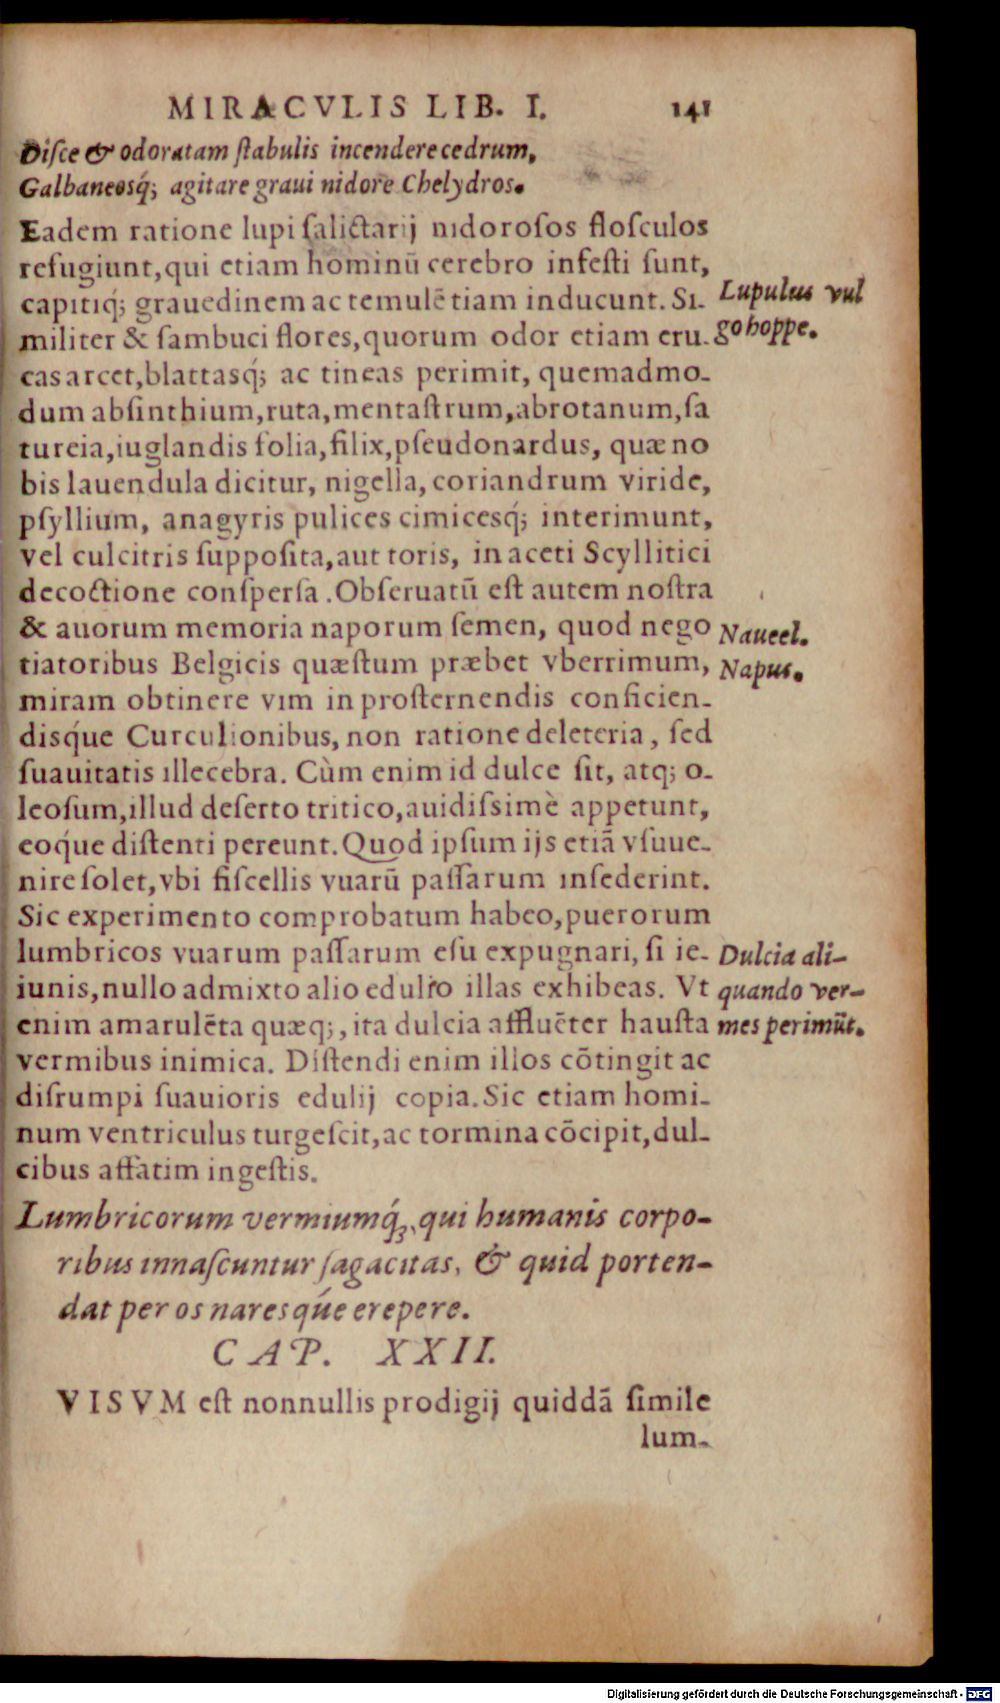 MIRACVLIS LIB. I. 141
Disce & odoratam stabulis incendere cedrum,
Galbaneosq́; agitare graui nidore Chelydros.
Eadem ratione lupi salictarij nidorosos flosculos
refugiunt, qui etiam hominū cerebro infesti sunt,
capitiq́; grauedinem ac temulētiam inducunt. Si-
Lupulus vul
militer & sambuci flores, quorum odor etiam eru-
go hoppe.
cas arcet, blattasq́; ac tineas perimit, quemadmo-
dum absinthium, ruta, mentastrum, abrotanum, sa
tureia, iuglandis folia, filix, pseudonardus, quæ no
bis lauendula dicitur, nigella, coriandrum viride,
psyllium, anagyris pulices cimicesq́; interimunt,
vel culcitris supposita, aut toris, in aceti Scyllitici
decoctione conspersa. Obseruatū est autem nostra
& auorum memoria naporum semen, quod nego
Naueel.
tiatoribus Belgicis quæstum præbet vberrimum,
Napus.
miram obtinere vim in prosternendis conficien-
disq́ue Curculionibus, non ratione deleteria, sed
suauitatis illecebra. Cùm enim id dulce sit, atq; o-
leosum, illud deserto tritico, auidissimè appetunt,
eoq́ue distenti pereunt. Quod ipsum ijs etiā vsuue-
nire solet, vbi fiscellis vuarū passarum insederint.
Sic experimento comprobatum habeo, puerorum
lumbricos vuarum passarum esu expugnari, si ie-
Dulcia ali-
iunis, nullo admixto alio edulio illas exhibeas. Vt
quando ver-
enim amarulēta quæq;, ita dulcia affluēter hausta
mes perimūt.
vermibus inimica. Distendi enim illos cōtingit ac
disrumpi suauioris edulij copia. Sic etiam homi-
num ventriculus turgescit, ac tormina cōcipit, dul-
cibus affatim ingestis.
Lumbricorum vermiumq́;, qui humanis corpo-
ribus innascuntur sagacitas, & quid porten-
dat per os naresq́ue erepere.
CAP. XXII.
VISVM est nonnullis prodigij quiddā simile
lum-
Digitalisierung gefördert durch die Deutsche Forschungsgemeinschaft - DFG